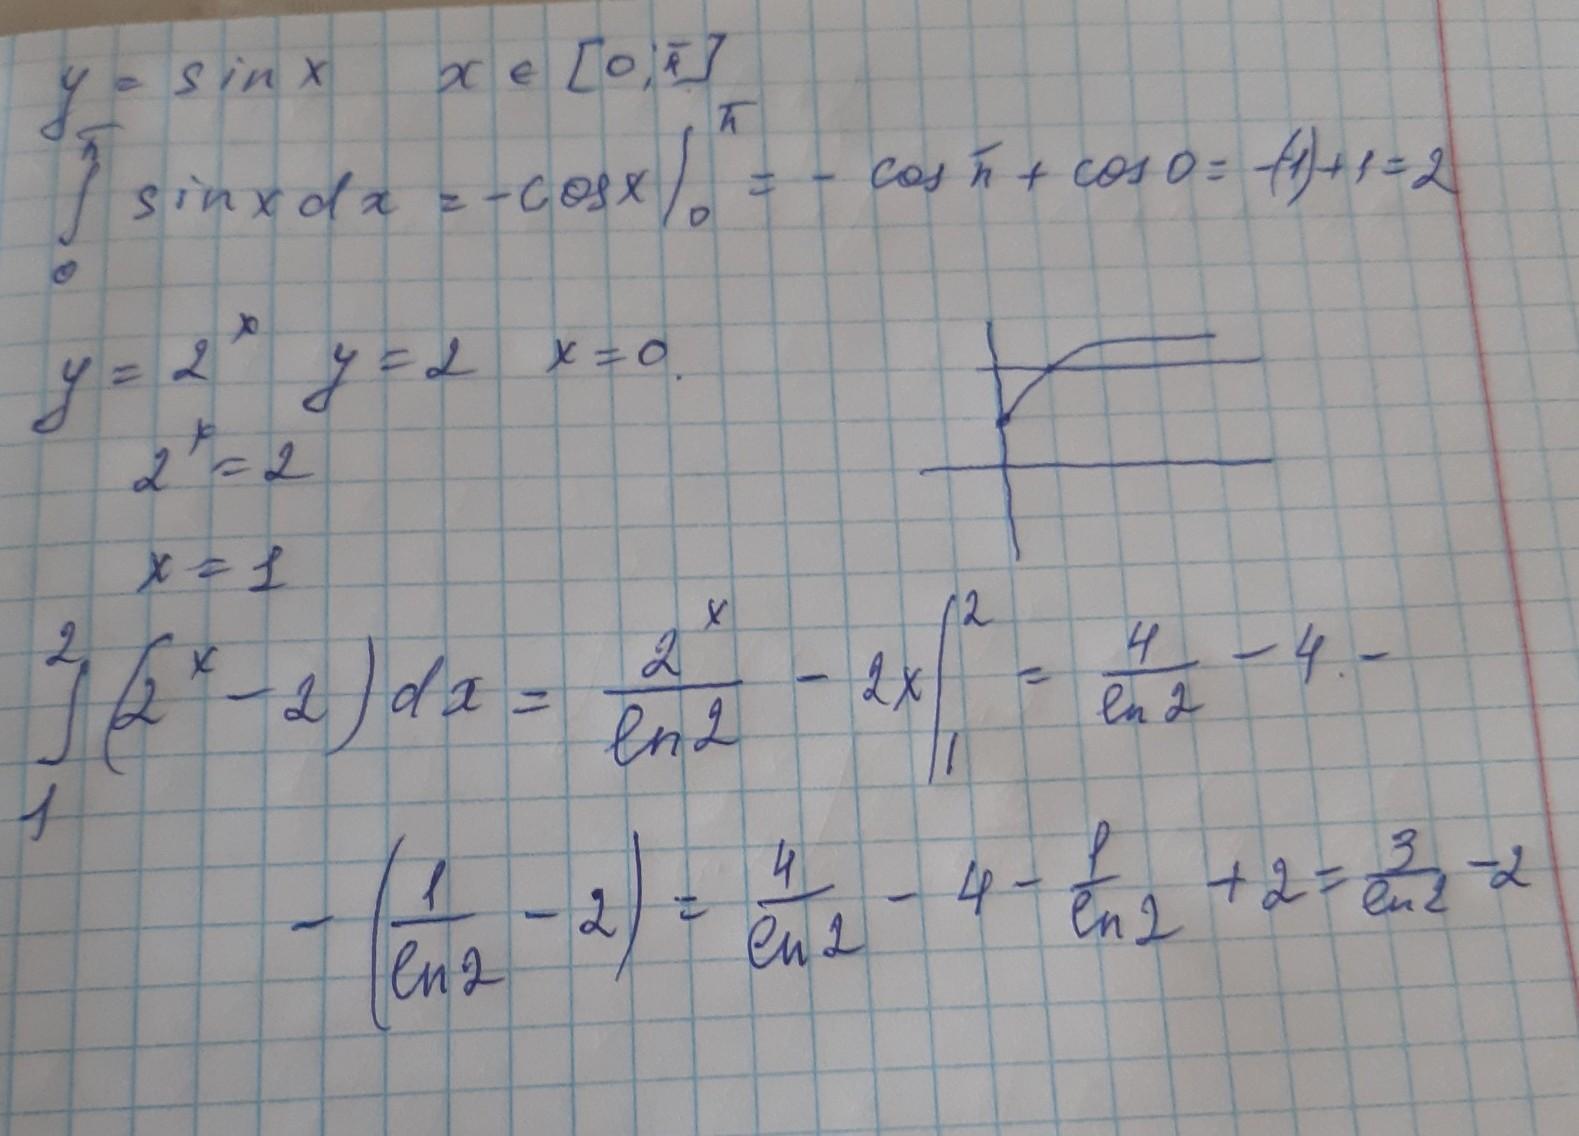 y = sin x   x ∈ [0; π]
∫₀^π sin x dx = - cos x |₀^π = - cos π + cos 0 = -(-1) + 1 = 2
y = 2^x   y = 2   x = 0.
2^x = 2
x = 1
∫₁² (2^x - 2) dx = 2^x / ln 2 - 2x |₁² = 4 / ln 2 - 4 -
- (1 / ln 2 - 2) = 4 / ln 2 - 4 - 1 / ln 2 + 2 = 3 / ln 2 - 2